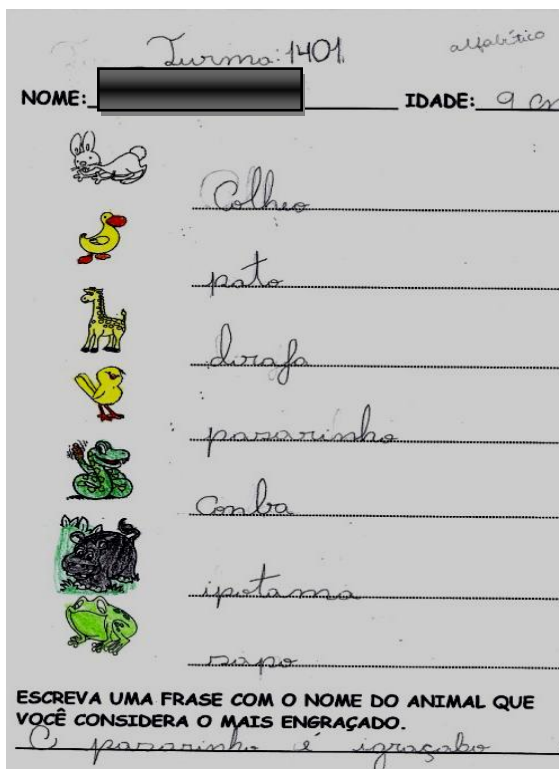 Turma: 1401
alfabético
NOME: IDADE: 9 an
Colheo
pato
dirafa
pasarinho
Conba
ipotama
sapo
ESCREVA UMA FRASE COM O NOME DO ANIMAL QUE
VOCÊ CONSIDERA O MAIS ENGRAÇADO.
O pasarinho é igraçabo